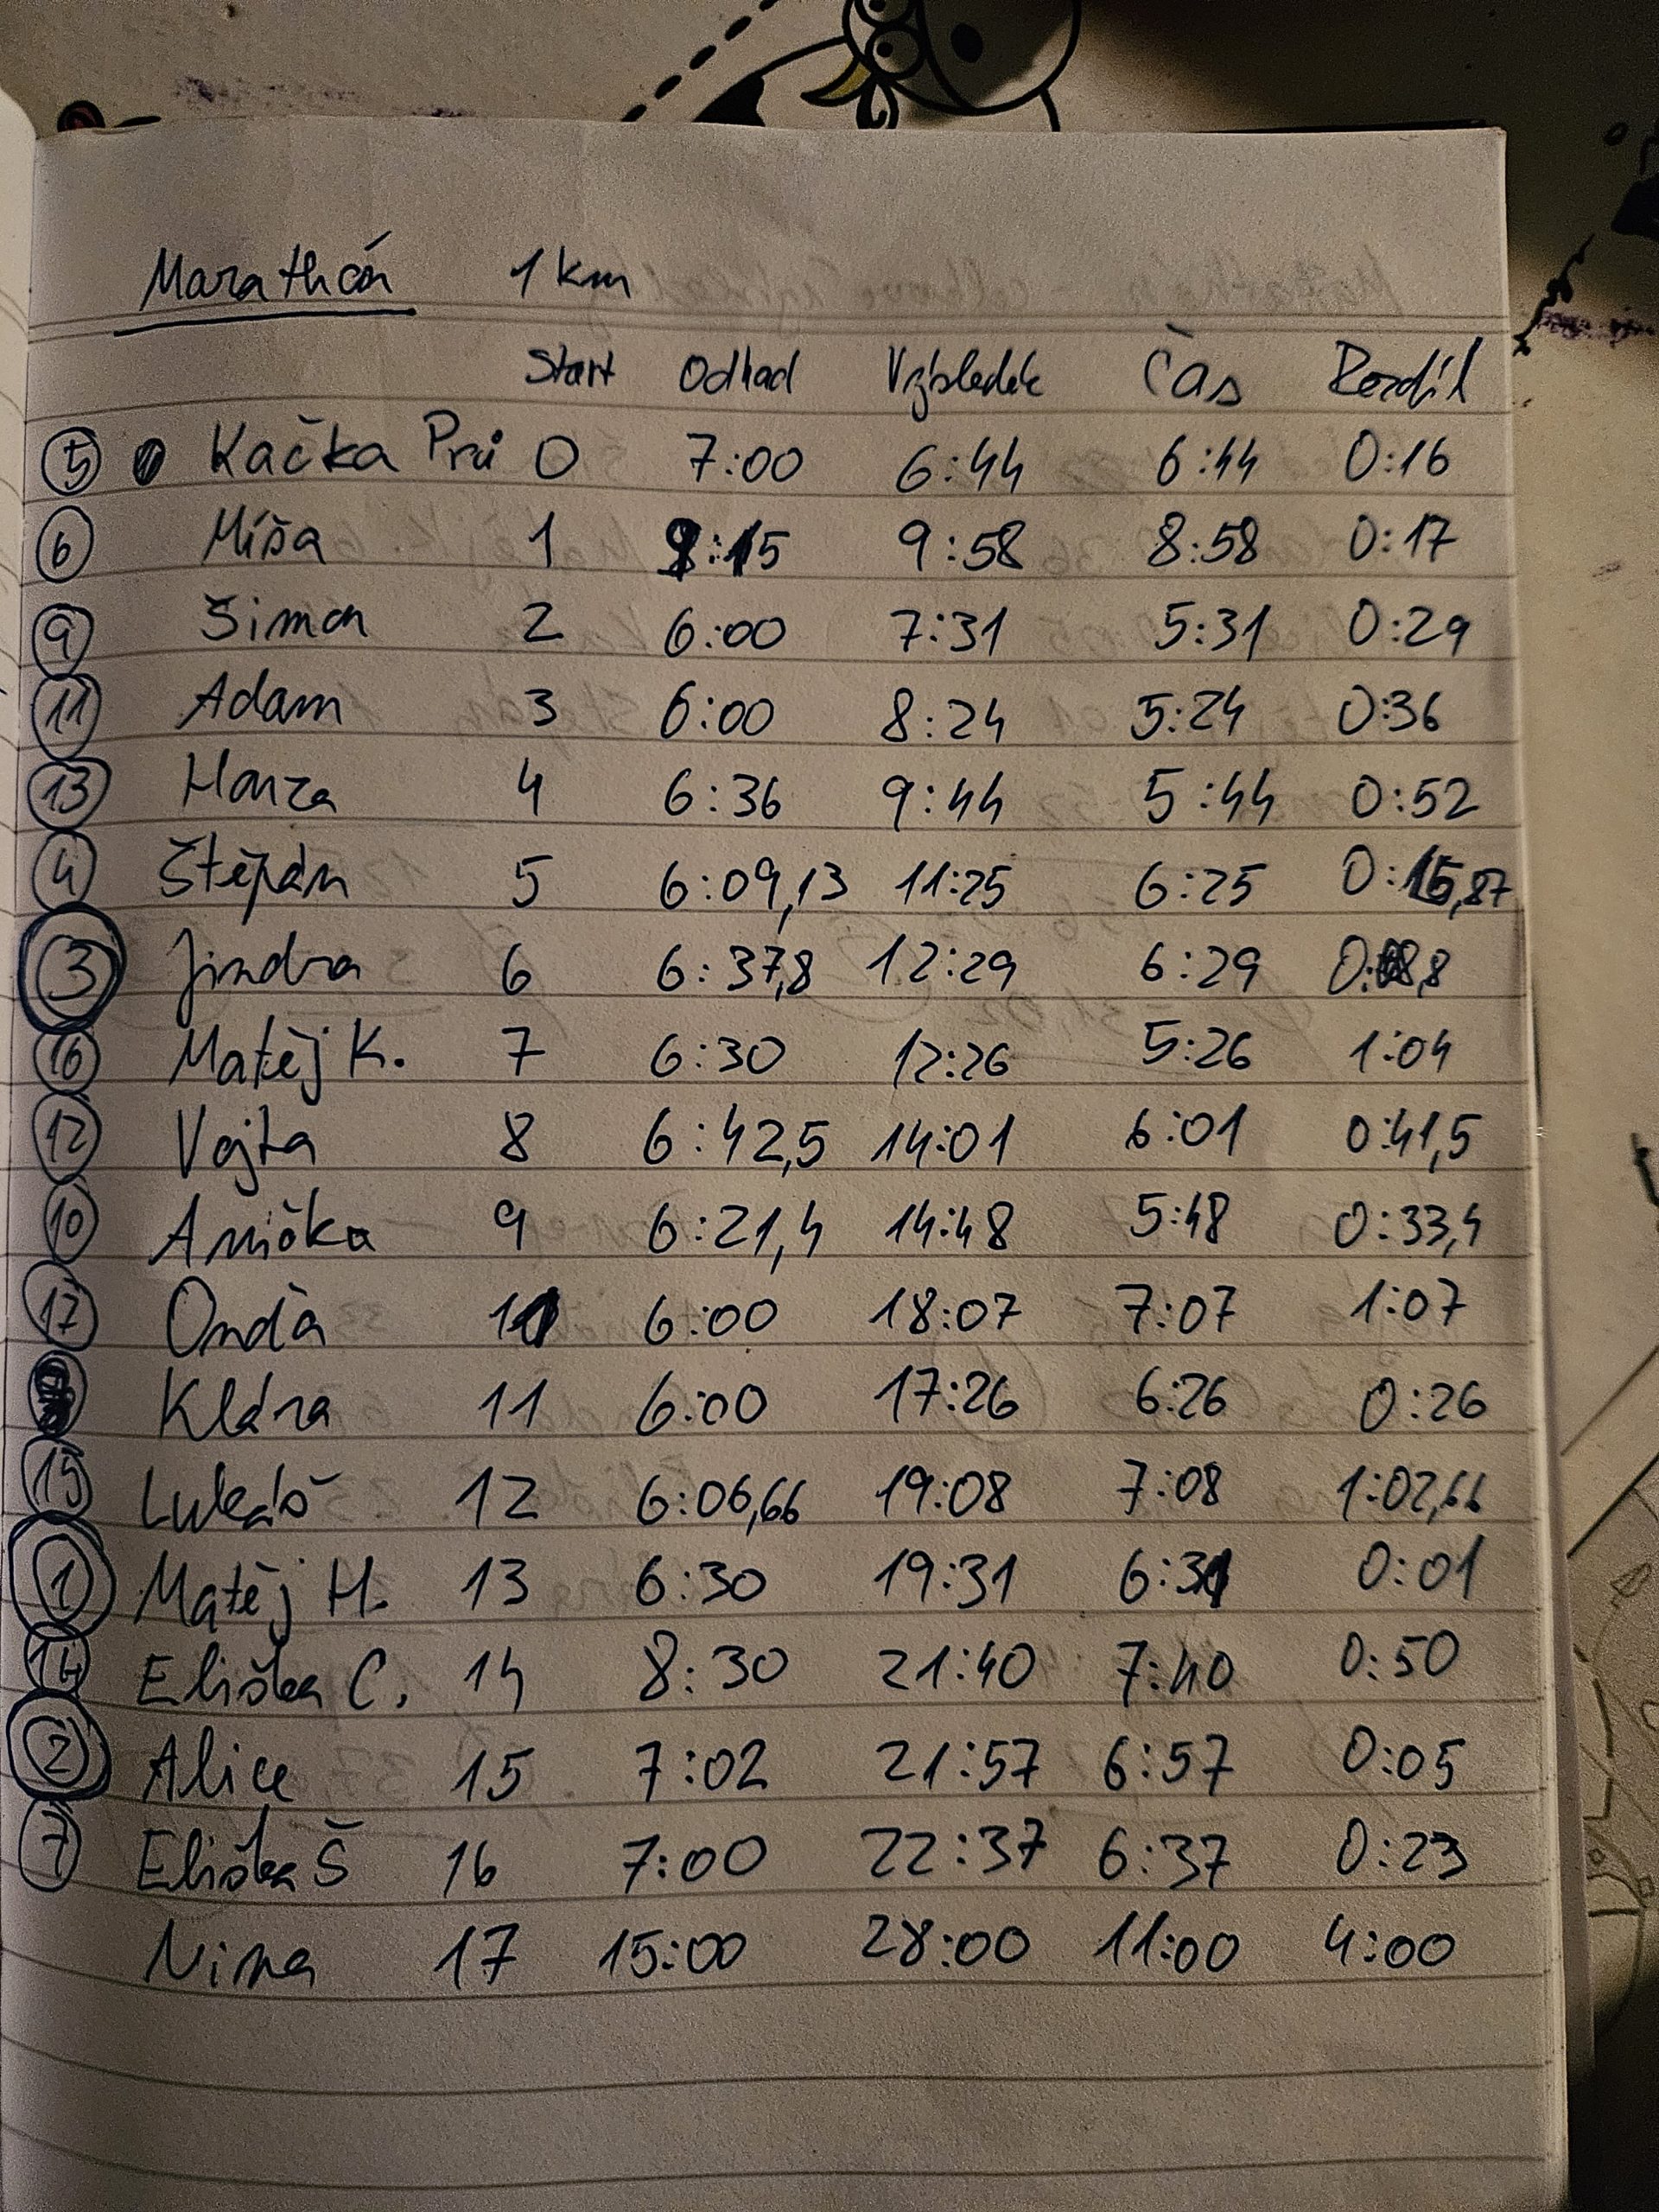 Marathón 1 km
Start Odhad Výsledek Čas Rozdíl
5 Kačka Prů 0 7:00 6:44 6:44 0:16
6 Míša 1 :15 9:58 8:58 0:17
9 Šimon 2 6:00 7:31 5:31 0:29
11 Adam 3 6:00 8:24 5:24 0:36
13 Honza 4 6:36 9:44 5:44 0:52
4 Štěpán 5 6:09,13 11:25 6:25 0:15,87
3 Jindra 6 6:37,8 12:29 6:29 0:08,8
16 Matěj K. 7 6:30 12:26 5:26 1:04
12 Vojta 8 6:42,5 14:01 6:01 0:41,5
10 Anička 9 6:21,4 14:48 5:48 0:33,4
17 Onďa 6:00 18:07 7:07 1:07
Klára 11 6:00 17:26 6:26 0:26
15 Lukáš 12 6:06,66 19:08 7:08 1:02,66
1 Matěj H. 13 6:30 19:31 6:31 0:01
14 Eliška C. 14 8:30 21:40 7:40 0:50
2 Alice 15 7:02 21:57 6:57 0:05
7 Eliška Š 16 7:00 22:37 6:37 0:23
Nina 17 15:00 28:00 11:00 4:00